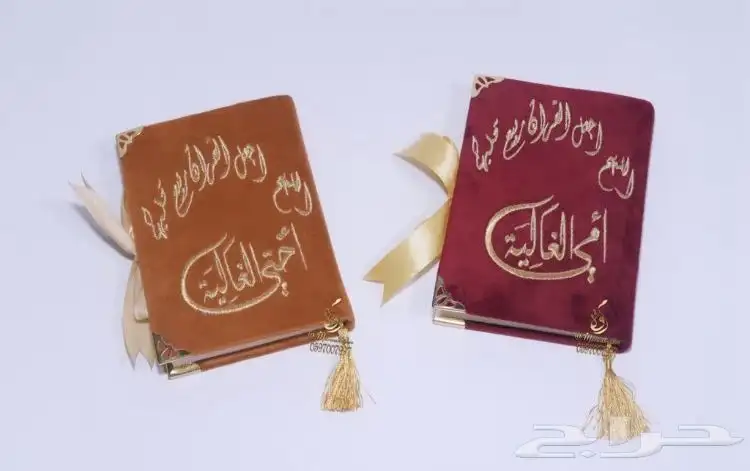 اللهم
اجعل القرآن ربيع قلبها
أختي الغالية
اللهم
اجعل القرآن ربيع قلبها
أمي الغالية
حراج